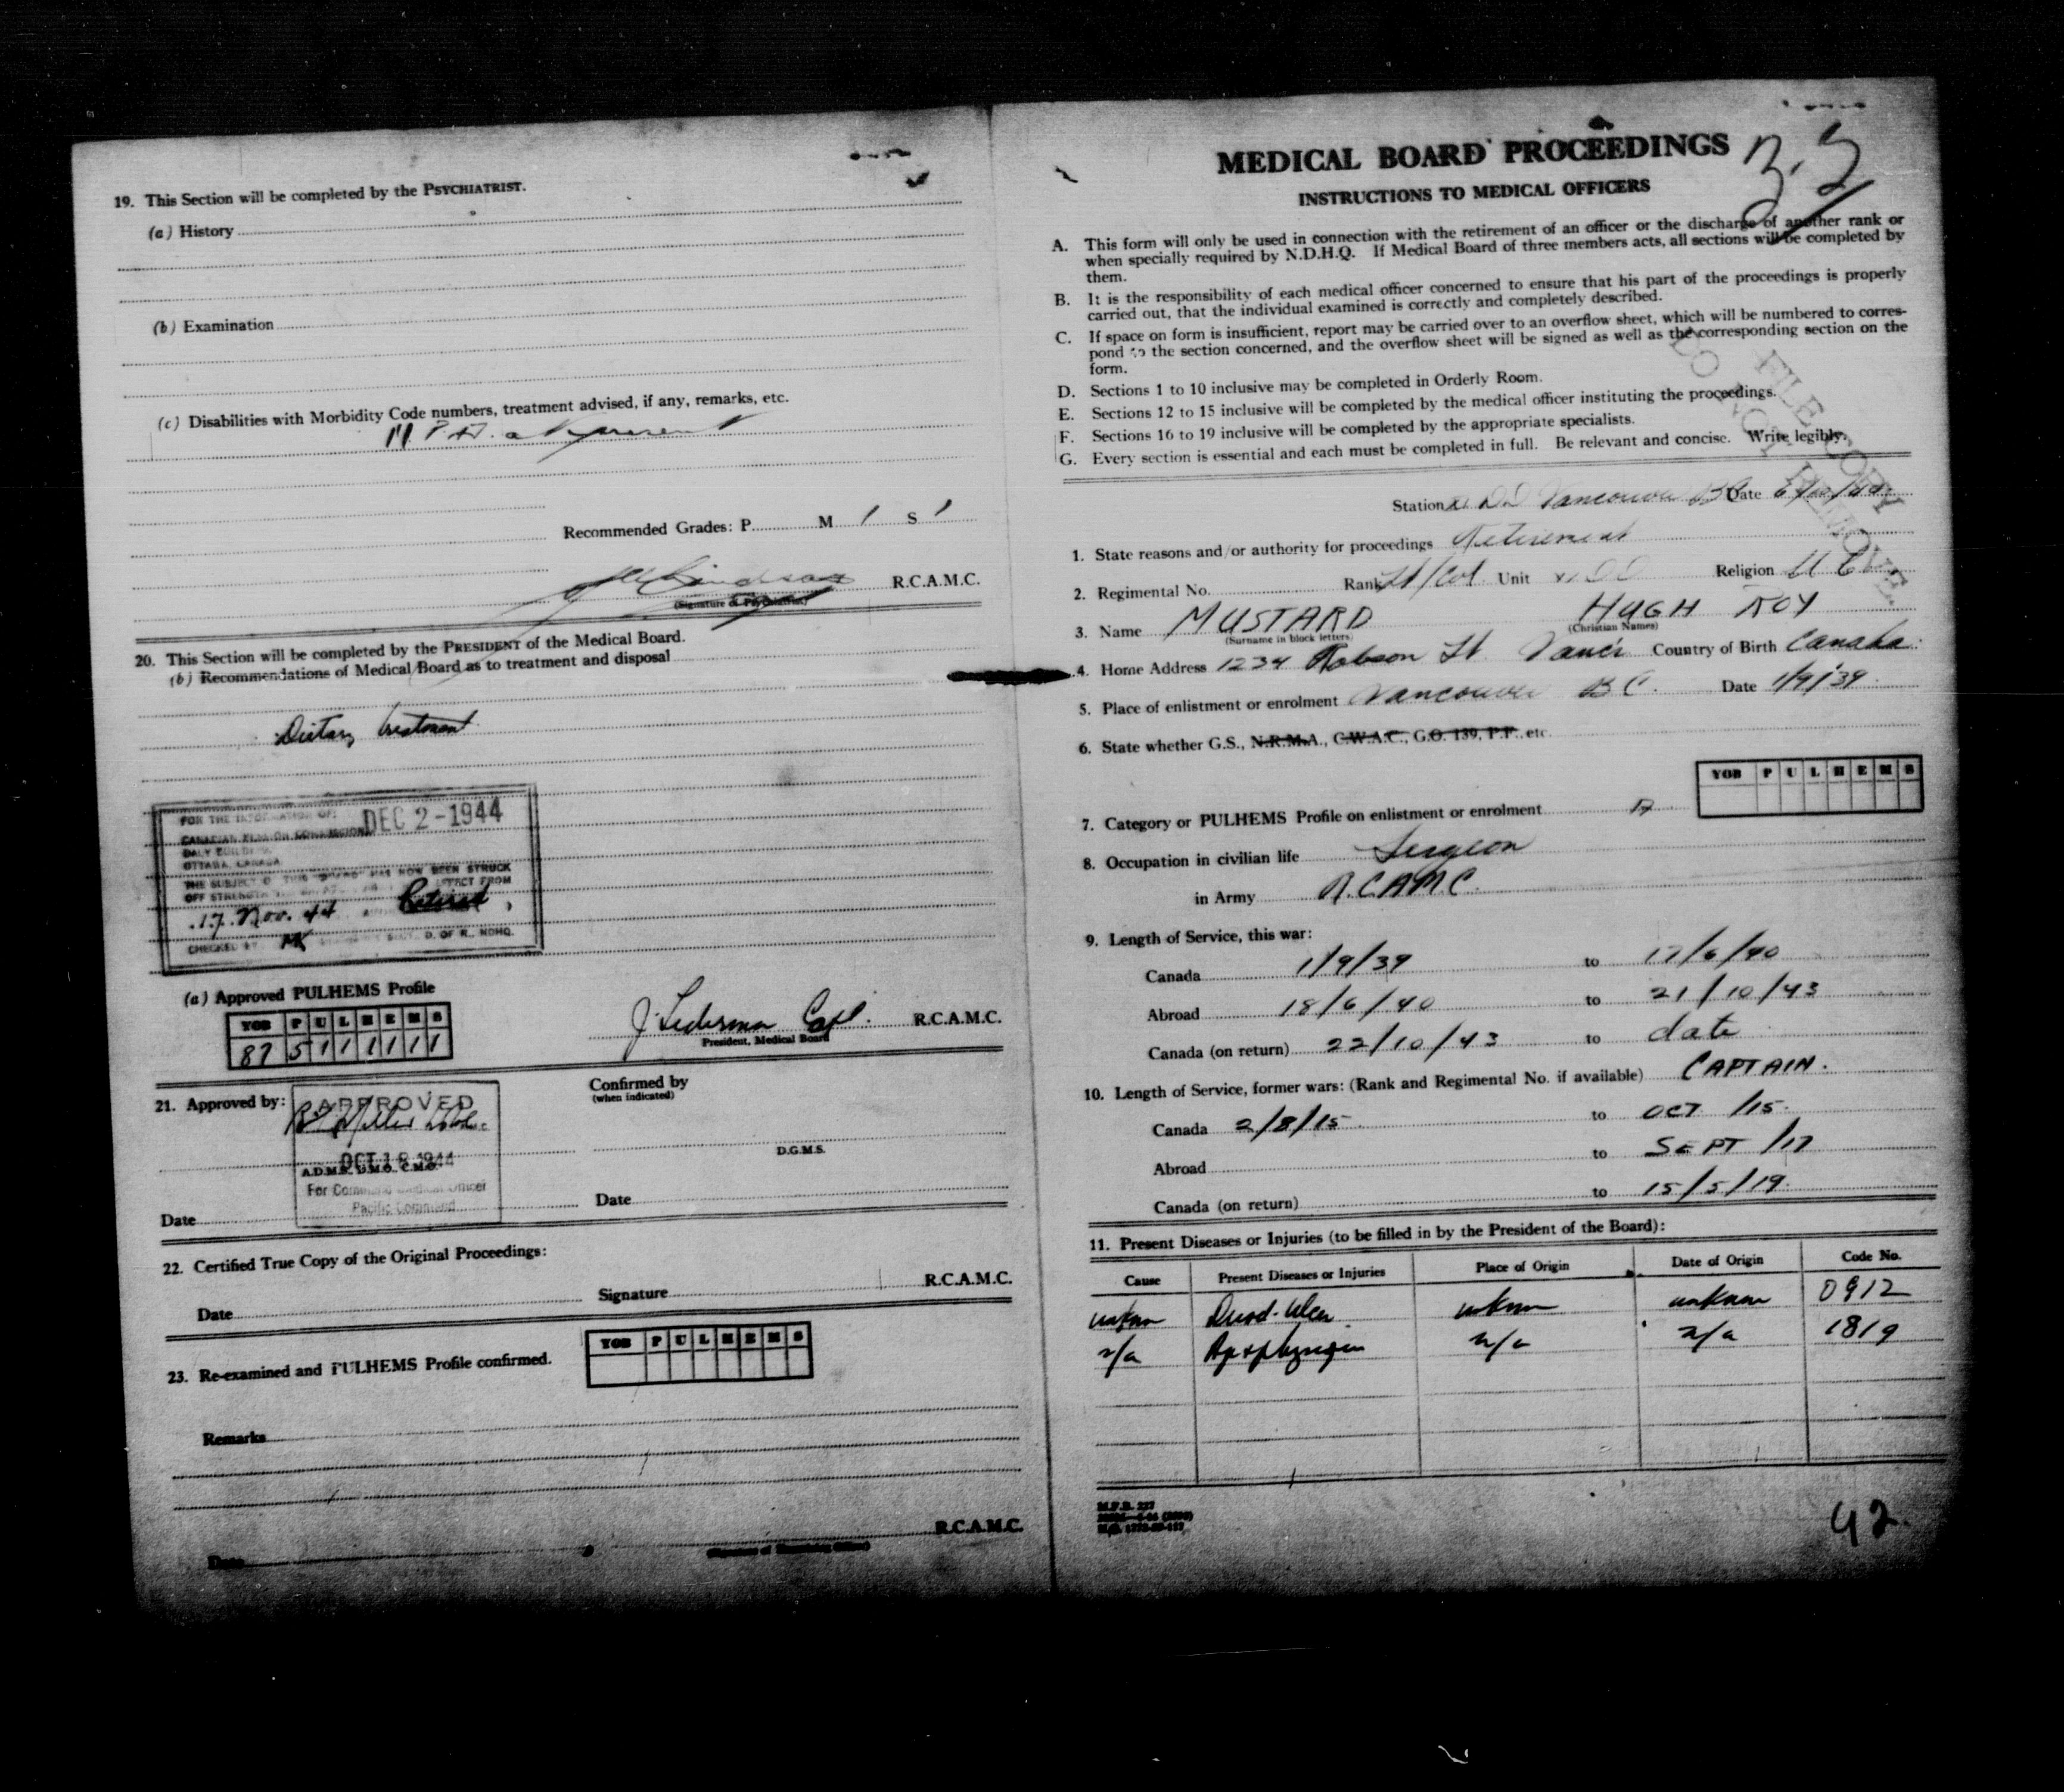 19. This Section will be completed by the PSYCHIATRIST.
(a) History
(b) Examination
(c) Disabilities with Morbidity Code numbers, treatment advised, if any, remarks, etc.
at present
Recommended Grades: P M 1 S 1
R.C.A.M.C.
(Signature of Psychiatrist)
20. This Section will be completed by the PRESIDENT of the Medical Board.
(b) Recommendations of Medical Board as to treatment and disposal
Dietary treatment
FOR THE INFORMATION OF: DEC 2-1944
CANADIAN PENSION COMMISSION
DALY BUILDING,
OTTAWA, CANADA
THE SUBJECT OF THIS BOARD HAS NOW BEEN STRUCK
OFF STRENGTH EFFECT FROM
17. Nov. 44 Retired,
CHECKED BY MK D. OF R., NDHQ.
(a) Approved PULHEMS Profile
YOB P U L H E M S
87 5 1 1 1 1 1 1
J Lederman Capt. R.C.A.M.C.
President, Medical Board
21. Approved by:
APPROVED
OCT 18 1944
A.D.M.S. D.M.O. C.M.O.
For Command Medical Officer
Pacific Command
Date
Confirmed by
(when indicated)
D.G.M.S.
Date
22. Certified True Copy of the Original Proceedings:
Date Signature R.C.A.M.C.
23. Re-examined and PULHEMS Profile confirmed.
YOB P U L H E M S
Remarks
R.C.A.M.C.
Date (Signature of Examining Officer)
MEDICAL BOARD PROCEEDINGS
INSTRUCTIONS TO MEDICAL OFFICERS
A. This form will only be used in connection with the retirement of an officer or the discharge of another rank or
when specially required by N.D.H.Q. If Medical Board of three members acts, all sections will be completed by
them.
B. It is the responsibility of each medical officer concerned to ensure that his part of the proceedings is properly
carried out, that the individual examined is correctly and completely described.
C. If space on form is insufficient, report may be carried over to an overflow sheet, which will be numbered to corres-
pond to the section concerned, and the overflow sheet will be signed as well as the corresponding section on the
form.
D. Sections 1 to 10 inclusive may be completed in Orderly Room.
E. Sections 12 to 15 inclusive will be completed by the medical officer instituting the proceedings.
F. Sections 16 to 19 inclusive will be completed by the appropriate specialists.
G. Every section is essential and each must be completed in full. Be relevant and concise. Write legibly.
FILE COPY
DO NOT REMOVE.
Station XI DD Vancouver BC Date
1. State reasons and/or authority for proceedings Retirement
2. Regimental No. Rank Lt/Col. Unit XI DD Religion U C
3. Name MUSTARD HUGH ROY
(Surname in block letters) (Christian Names)
4. Home Address 1234 Robson St. Vanc'r Country of Birth Canada.
5. Place of enlistment or enrolment Vancouver B C. Date 1/9/39.
6. State whether G.S., N.R.M.A., C.W.A.C., G.O. 139, P.F., etc.
YOB P U L H E M S
7. Category or PULHEMS Profile on enlistment or enrolment A
8. Occupation in civilian life Surgeon
in Army R.C.A.M.C.
9. Length of Service, this war:
Canada 1/9/39 to 17/6/40
Abroad 18/6/40 to 21/10/43
Canada (on return) 22/10/43 to date
10. Length of Service, former wars: (Rank and Regimental No. if available) CAPTAIN.
Canada 2/8/15 to OCT /15.
Abroad to SEPT /17
Canada (on return) to 15/5/19.
11. Present Diseases or Injuries (to be filled in by the President of the Board):
Cause Present Diseases or Injuries Place of Origin Date of Origin Code No.
unknown Duod. Ulcer unknown unknown 0912
n/a n/a n/a 1819
M.F.B. 227
42.